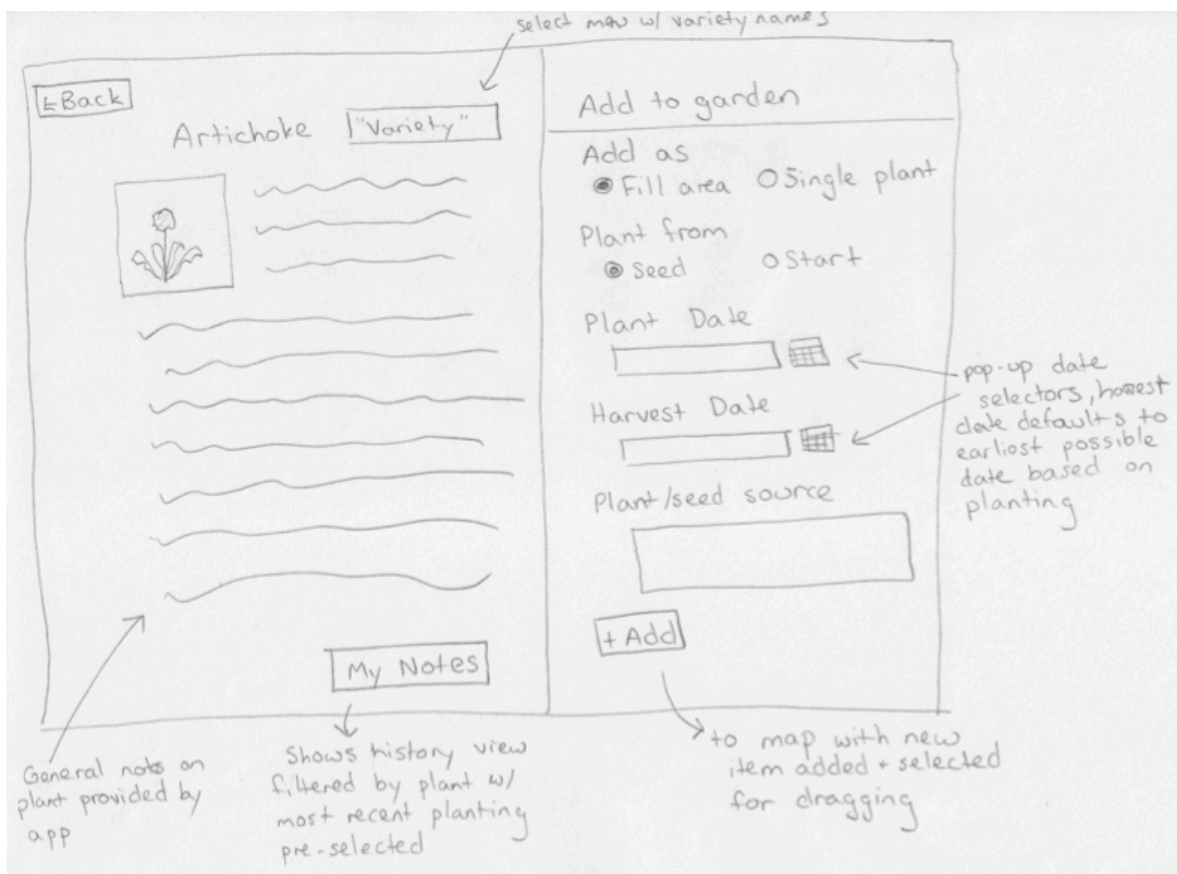 select menu w/ variety names
←Back
Artichoke "Variety"
Add to garden
Add as
Fill area Single plant
Plant from
Seed Start
Plant Date
Harvest Date
Plant/seed source
+ Add
My Notes
pop-up date
selectors, harvest
date defaults to
earliest possible
date based on
planting
General notes on
plant provided by
app
Shows history view
filtered by plant w/
most recent planting
pre-selected
to map with new
item added + selected
for dragging